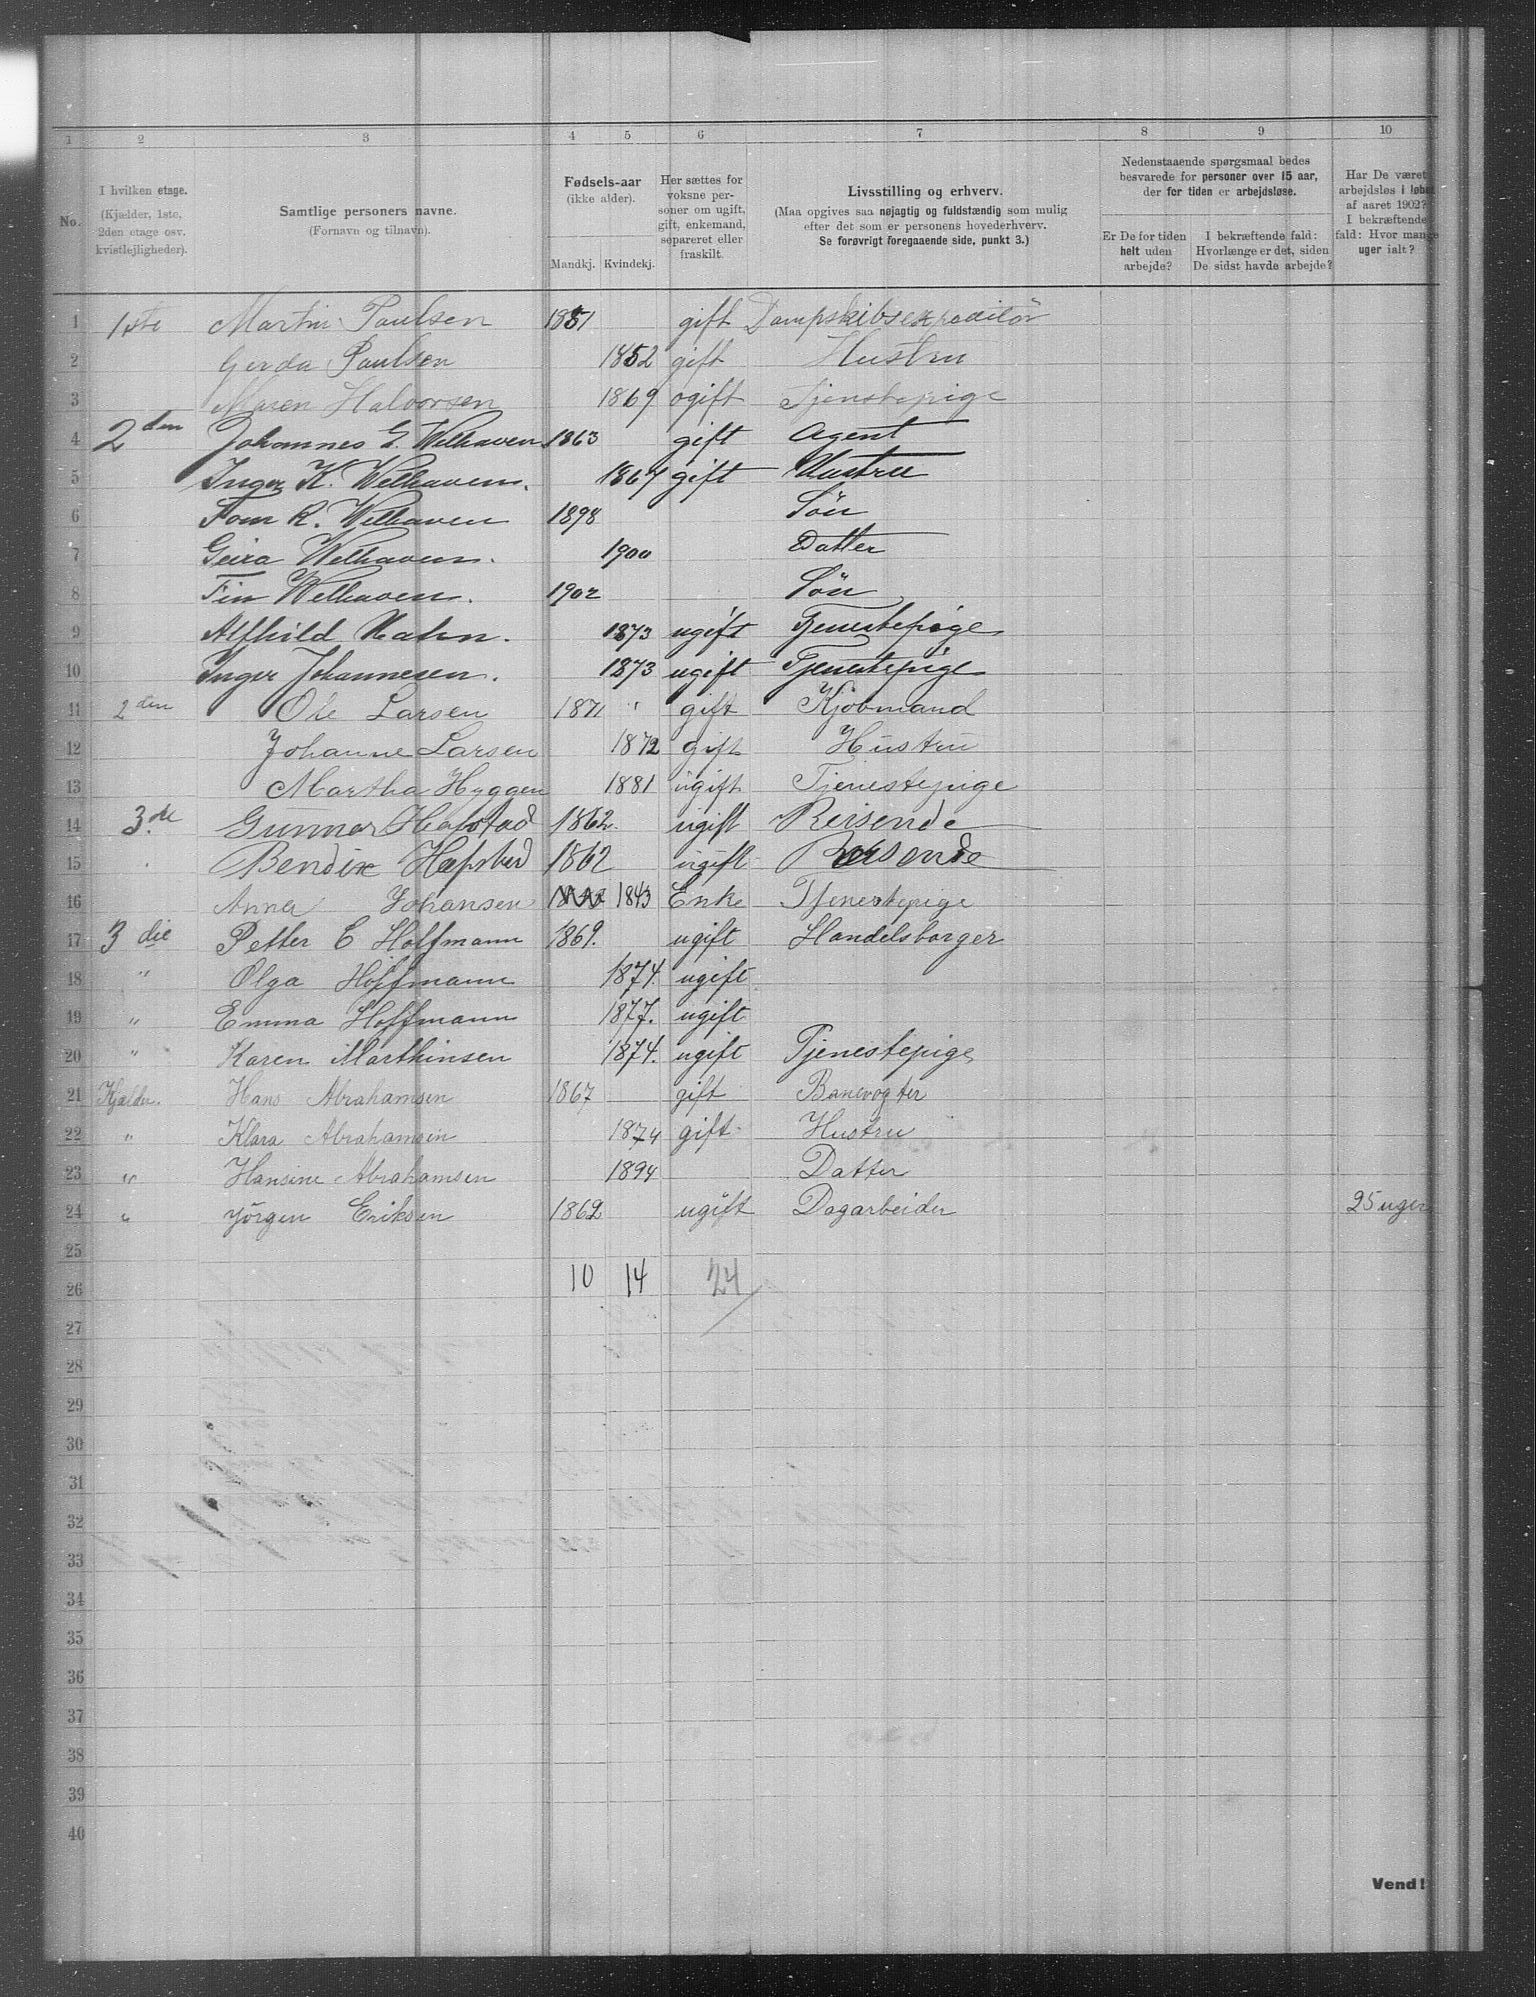 1 2 3 4 5 6 7 8 9 10
No.
I hvilken etage.
(Kjælder, 1ste,
2den etage osv.
kvistlejligheder).
Samtlige personers navne.
(Fornavn og tilnavn).
Fødsels-aar
(ikke alder).
Mandkj. Kvindekj.
Her sættes for
voksne per-
soner om ugift,
gift, enkemand,
separeret eller
fraskilt.
Livsstilling og erhverv.
(Maa opgives saa nøjagtig og fuldstændig som mulig
efter det som er personens hovederhverv.
Se forøvrigt foregaaende side, punkt 3.)
Nedenstaaende spørgsmaal bedes
besvarede for personer over 15 aar,
der for tiden er arbejdsløse.
Er De for tiden
helt uden
arbejde?
I bekræftende fald:
Hvorlænge er det, siden
De sidst havde arbejde?
Har De været
arbejdsløs i løbet
af aaret 1902?
I bekræftende
fald: Hvor mange
uger ialt?
1 1ste Martin Paulsen 1851 gift Dampskibsexpeditör
2 Gerda Paulsen 1852 gift Hustru
3 Maren Halvorsen 1869 ogift Tjenstepige
4 2den Johannes E. Welhaven 1863 gift Agent
5 Inger K. Welhaven. 1867 gift Hustru
6 Tom R. Welhaven 1898 Sön
7 Geira Welhaven. 1900 Datter
8 Fin Welhaven. 1902 Sön
9 Alfhild Hahn. 1873 ugift Tjenestepige
10 Inger Johannesen. 1873 ugift Tjenestepige
11 2den Ole Larsen 1871 " gift Kjöbmand
12 Johanne Larsen 1872 gift Hustru
13 Martha Hyggen 1881 ugift Tjenestepige
14 3.de Gunnar Hafstad 1862. ugift Reisende
15 Bendix Hafstad 1862 ugift Reisende
16 Anna Johansen 1843 Enke Tjenestepige
17 3die Petter C Hoffmann 1869. ugift Handelsborger
18 " Olga Hoffmann 1874. ugift
19 " Emma Hoffmann 1877. ugift
20 " Karen Marthinsen 1874. ugift Tjenestepige
21 Kjælder. Hans Abrahamsen 1867 gift Banevogter
22 " Klara Abrahamsen 1874 gift Hustru
23 " Hansine Abrahamsen 1894 Datter
24 " Jörgen Eriksen 1862 ugift Dagarbeider 25 uger
25
26 10 14 24
27
28
29
30
31
32
33
34
35
36
37
38
39
40
Vend!